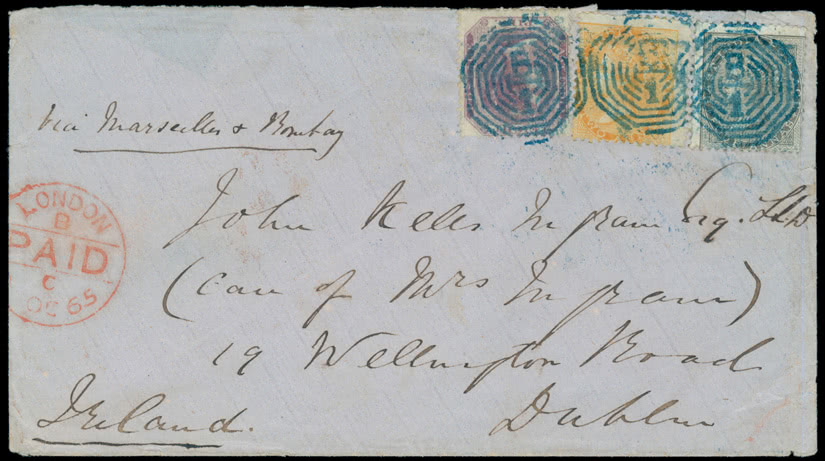 via Marseilles & Bombay
LONDON
B
PAID
C
OC 65
B
1
B
1
B
1
John Kells Ingram Esq. LLD
(care of Mrs Ingram)
19 Wellington Road
Dublin
Ireland.